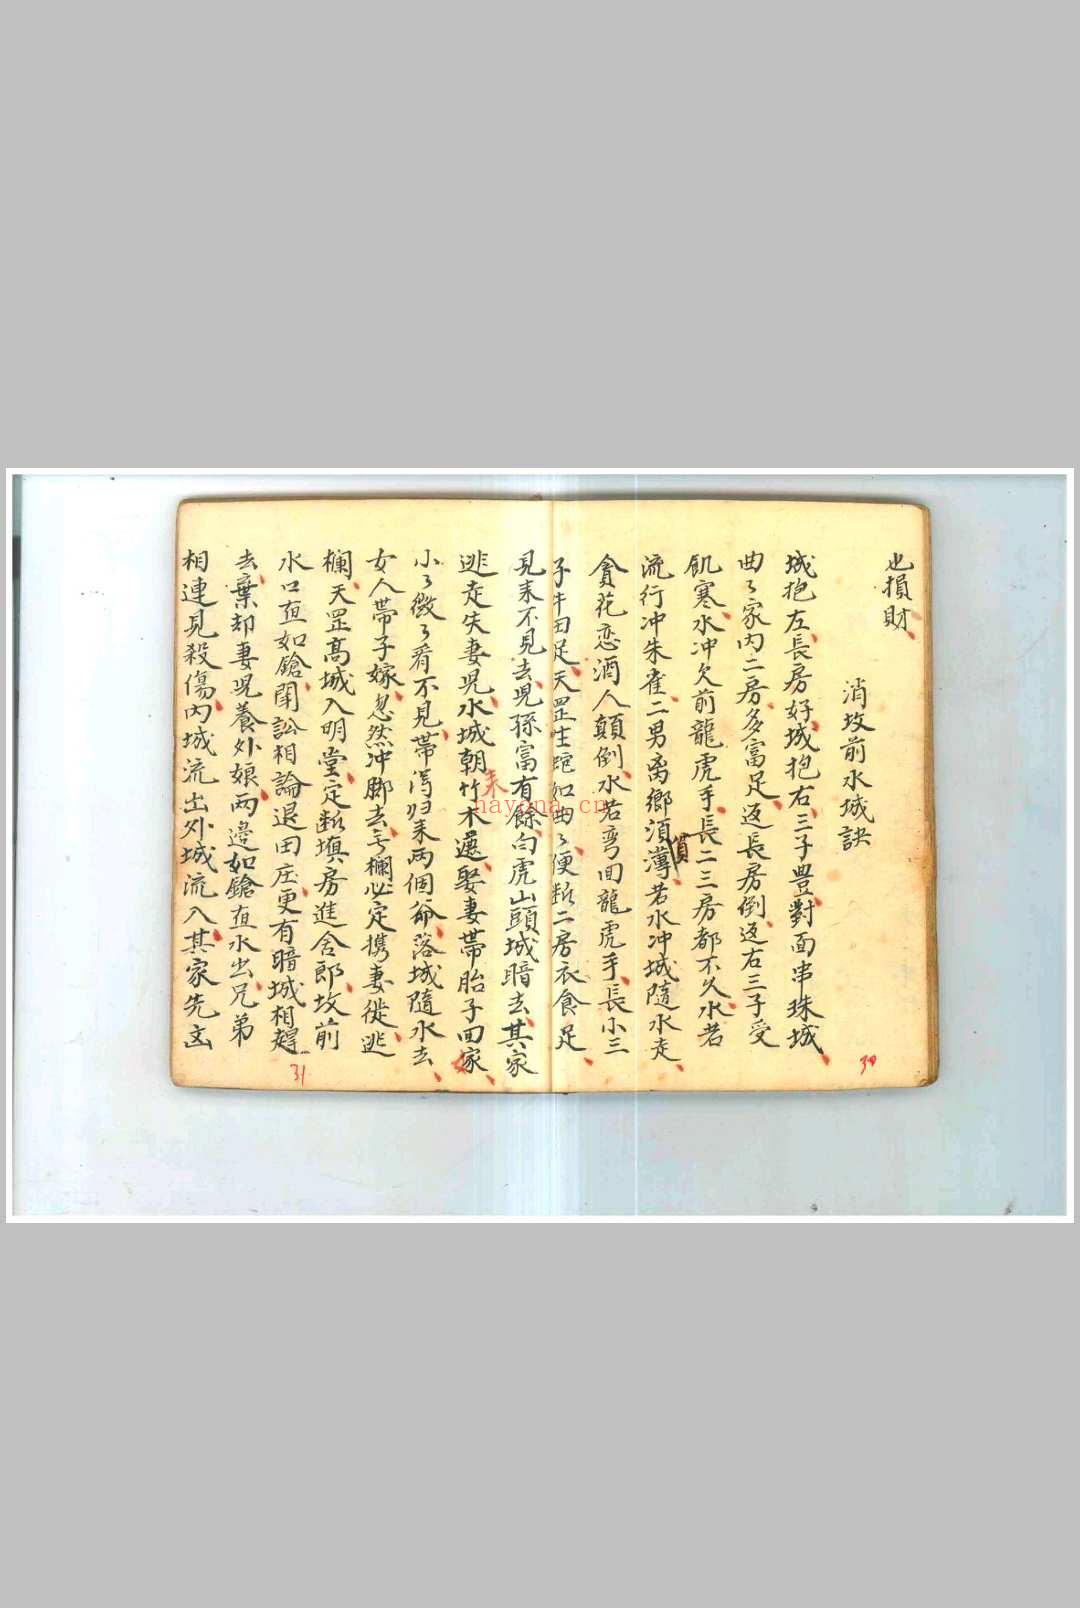 也損財
消坟前水城訣
城抱左長房好城抱右三子豊對面串珠城
曲々家内二房多富足返長房倒返右三子受
飢寒水冲欠前龍虎手長二三房都不久水若
流行冲朱雀二男离鄉須薄若水冲城隨水走
貪花恋酒人顛倒水若弯回龍虎手長小三
子牛田足天罡生蛇如曲々便断二房衣食足
見耒不見去児孫富有餘白虎山頭城暗去其家
逃走失妻児水城朝竹木遮娶妻帯胎子回家
耒
小々微々看不見帯瀉归耒両個爺落城隨水去
女人帯子嫁忽然冲脚去無欄必定携妻徙逃
欄天罡高城入明堂定断填房進舍郎坟前
水口直如鎗閗訟相論退田庄更有暗城相
去棄却妻児養外娘両邉如鎗直水出兄弟
相連見殺傷内城流出外城流入其家先
30
31
nayona.cn